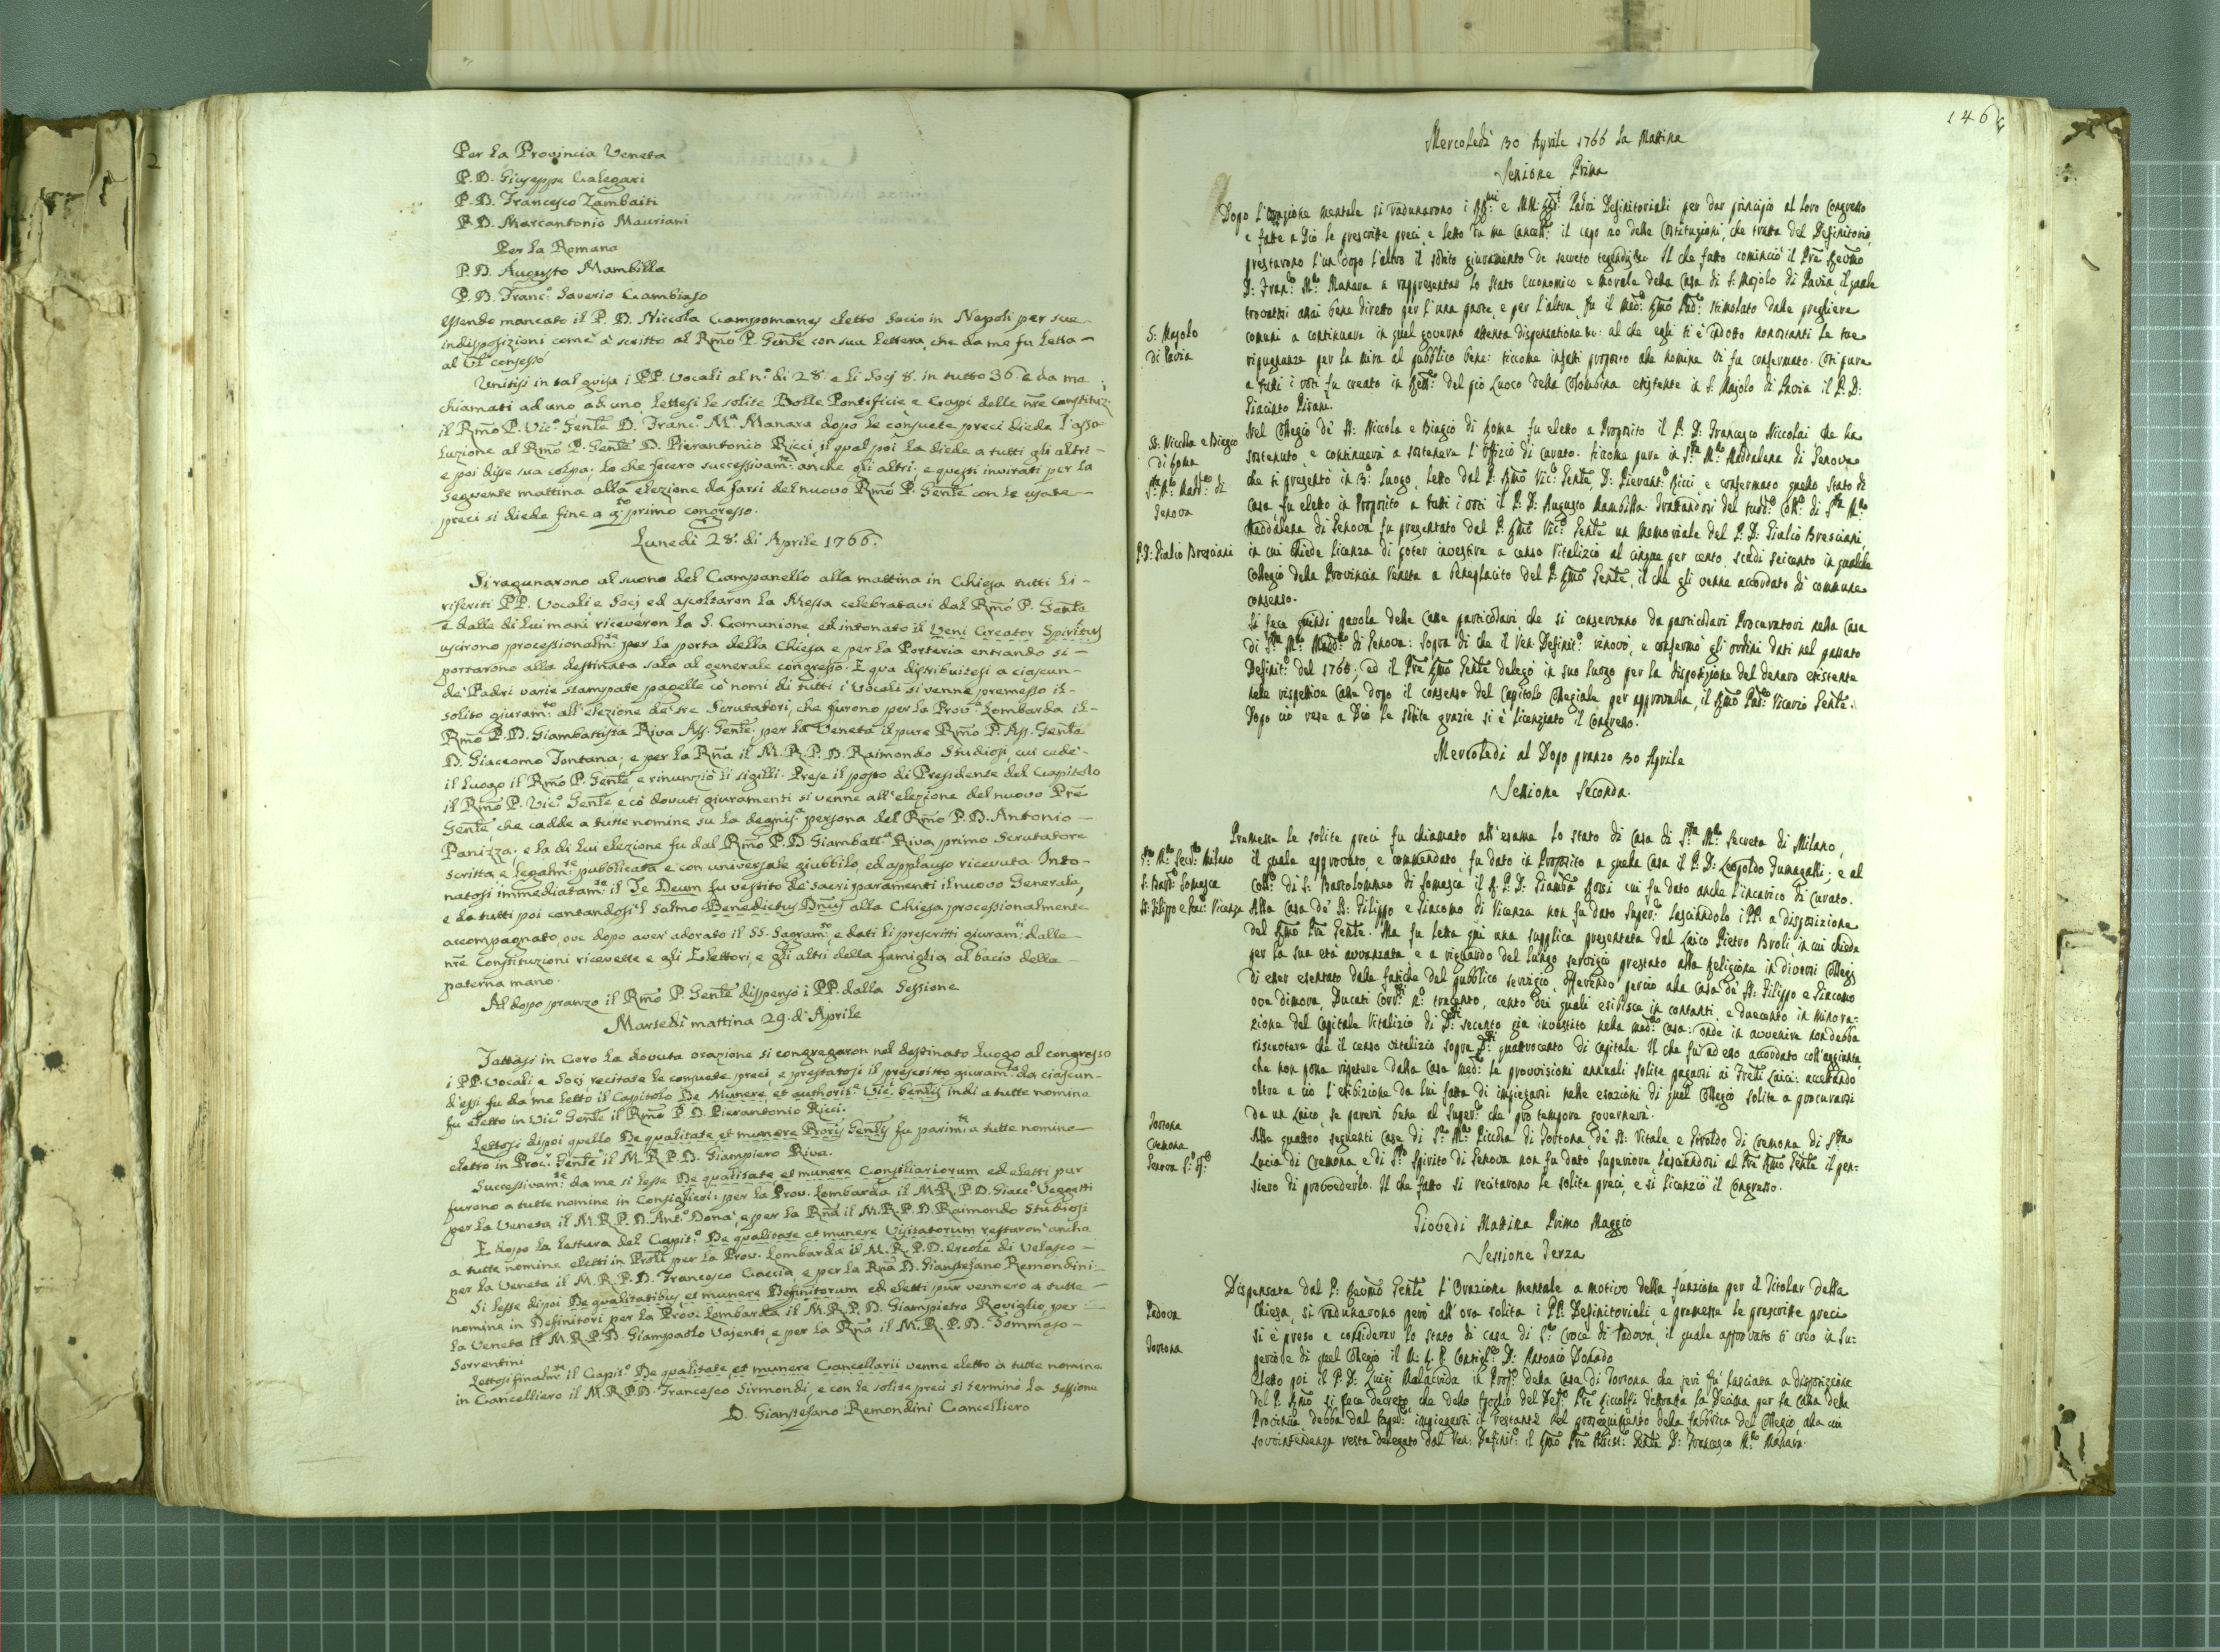 Per la Provincia Veneta
P. D. Giuseppe Calegari
P. D. Francesco Zambaiti
P. D. Marcantonio Mauriani
Per la Romana
P. D. Augusto Mambilla
P. D. Franc.º Saverio Cambiaso
essendo mancato il P. D. Niccola Campomanes eletto Socio in Napoli per sue
indisposizioni come à scritto al Rmo P. Genle con sua Lettera che da me fu letta
al Vl consesso
Unitisi in tal guisa i PP. Vocali al n.º di 28. e li Socj 8. in tutto 36. e da me
chiamati ad uno ad uno, lettesi le solite Bolle Pontificie e Capi delle nre Constituz.
il Rmo P. Vic.º Genle D. Franc.º M.ª Manara dopo le consuete preci diede l'asso
luzione al Rmo P. Genle D. Pierantonio Ricci il qual poi la diede a tutti gli altri
e poi disse sua colpa; lo che fecero successivam.te anche gli altri; e questi invitati per la
seguente mattina alla elezione da farsi del nuovo Rmo P. Genle con le usate
preci si diede fine a q.to primo congresso.
Lunedì 28. di Aprile 1766.
Si ragunarono al suono del Campanello alla mattina in Chiesa tutti li
riferiti PP. Vocali e Socj ed ascoltaron la Messa celebratavi dal Rmo P. Genle
e dalle di lui mani riceveron la S. Comunione, ed intonato il Veni Creator Spiritus
uscirono processionalm.te per la porta della Chiesa e per la Porteria entrando si
portarono alla destinata sala al generale congresso. E qua distribuitesi a ciascun
de' Padri varie stampate pagelle co' nomi di tutti i Vocali si venne premesso il
solito giuram.to all'elezione de' tre Scrutatori, che furono per la Prov.ª Lombarda il
Rmo P. D. Giambattista Riva Ass. Genle. per la Veneta il pure Rmo P. Ass. Genle
D. Giaccomo Fontana; e per la Rna il M. R. P. D. Raimondo Studiosi, cui cedè
il luogo il Rmo P. Genle, e rinunziò li sigilli. Prese il posto di Presidente del Capitolo
il Rmo P. Vic.º Genle e cò dovuti giuramenti si venne all'elezione del nuovo Pre
Genle, che cadde a tutte nomine su la degnis.ª persona del Rmo P. D. Antonio
Panizza; e la di lui elezione fu dal Rmo P. D. Giambatt.ª Riva primo Scrutatore
scritta, e legalm.te pubblicata e con universale giubbilo, ed applauso ricevuta. Into
natosi immediatam.te il Te Deum fu vestito de' sacri paramenti il nuovo Generale,
e da tutti poi cantandosi'l Salmo Benedictus Dnus alla Chiesa processionalmente
accompagnato, ove dopo aver adorato il SS. Sagram.to, e dati li prescritti giuram.ti dalle
nre Constituzioni ricevette e gli Elettori, e gli altri della famiglia al bacio della
paterna mano.
Al dopo pranzo il Rmo P. Genle dispensò i PP. dalla Sessione
Martedì mattina 29. d'Aprile
Fattasi in Coro la dovuta orazione si congregaron nel destinato luogo al congresso
i PP. Vocali, e Socj recitate le consuete preci, e prestatosi il prescritto giuram.to da ciascun
d'essi fu da me letto il Capitolo De Munere, et authorit.e Vic. Genlis indi a tutte nomine
fu eletto in Vic.º Genle il Rmo P. D. Pierantonio Ricci.
Lettosi dipoi quello De qualitate, et munere Proris Genlis fu parim.te a tutte nomine
eletto in Proc.r Genle il M. R. P. D. Giampiero Riva.
Successivam.te da me si lesse De qualitate, et munere Consiliariorum ed eletti pur
furono a tutte nomine in Consiglieri: per la Prov. Lombarda il M. R. P. D. Giacc.º Veggetti
per la Veneta il M. R. P. D. Ant.º Donà, e per la Rna il M. R. P. D. Raimondo Studiosi
E dopo la lettura del Capit.º De qualitate et munere Visitatorum restaron' anche
a tutte nomine eletti in Proli per la Prov. Lombarda il M. R. P. D. Ercole di Velasco
per la Veneta il M. R. P. D. Francesco Caccia, e per la Rna D. Gianstefano Remondini
Si lesse dipoi De qualitatibus et munere Definitorum ed eletti pur vennero a tutte
nomine in Definitori per la Prov. Lombarda il M. R. P. D. Giampietro Roviglio, per
la Veneta il M. R. P. D. Giampaolo Vajenti, e per la Rna il M. R. P. D. Tommaso
Sorrentini
Lettosi finalm.te il Capit.º De qualitate, et munere Cancellarii venne eletto à tutte nomine
in Cancelliero il M. R. P. D. Francesco Sirmondi, e con le solite preci si terminò la Sessione
D. Gianstefano Remondini Cancelliero
146
Mercoledì 30 Aprile 1766 la Mattina
Sessione Prima
Dopo l'Orazione mentale si radunarono i RR.mi e MM. RR.i Padri Definitoriali per dar principio al loro Congresso
e fatte a Dio le prescritte preci, e letto da me Cancell.e il capo 20 delle Costituzioni, che tratta del Definitorio,
prestarono l'un dopo l'altro il solito giuramento de secreto Il che fatto cominciò il Pre Revmo
D: Fran.co M.a Manara a rappresentar lo Stato Economico e Morale della Casa di S: Majolo di Pavia, il quale
trovatosi assai bene diretto per l'una parte, e per l'altra, fu il med.o Rmo Pad.e stimolato dalle preghiere
S: Majolo
di Pavia
comuni a continuare in quel governo attenta dispensatione &c: al che egli si è indotto nonostanti le sue
ripugnanze per la mira al pubblico bene: siccome infatti proposto alle nomine vi fu confermato. Così pure
a tutti i voti fu creato in Rett.e del pio Luoco della Colombina esistente in S. Majolo di Pavia il P. D:
Giacinto Pisani.
SS: Niccola e Biagio
di Roma
Nel Collegio de' SS: Niccola e Biagio di Roma fu eletto a Preposito il P. D: Francesco Niccolai che ha
sostenuto, e continuerà a sostenere l'Uffizio di Curato. siccome pure in S.ta M.a Maddalena di Genova
S.ta M.a Mad.a di
Genova
che si presentò in 3.o Luogo, Letto dal P: Rmo Vic.o Genle, D: Pierant.o Ricci, e confermato quello Stato di
casa, fu eletto in Preposito a tutti i voti il P. D: Augusto Mambilla. Trattandosi del sudd.o Coll.o di S.ta M.a
Maddalena di Genova fu presentato dal P: Rmo Vic.o Genle un Memoriale del P. D: Gialio Bresciani
P. D: Gialio Bresciani
in cui chiede licenza di poter investire a censo Vitalizio al cinque per cento, scudi seicento in qualche
Collegio della Provincia Veneta a beneplacito del P. Rmo Genle, il che gli venne accordato di commune
consenso.
Si fece quindi parola delle Casse particolari, che si conservano da particolari Procuratori nella Casa
di S.ta M.a Madd.a di Genova: sopra di che il Ven. Definit.o rinovò, e confermò gli ordini dati nel passato
Definit.o del 1765, ed il Pre Rmo Genle delegò in suo luogo per la disposizione del denaro esistente
nelle rispettive Casse dopo il consenso del Capitolo Collegiale per approvarla, il Rmo Pad.e Vicario Genle.
Dopo ciò rese a Dio le solite grazie si è licenziato il Congresso.
Mercoledì al Dopo pranzo 30 Aprile
Sessione Seconda.
Premesse le solite preci fu chiamato all'esame lo stato di Casa di S.ta M.a Secreta di Milano,
S.ta M.a Secr.a Milano
il quale approvato, e commendato, fu dato in Preposito a quella Casa il P. D: Leopoldo Fumagalli; e al
S: Bart.o Somasca
Coll.o di S: Bartolommeo di Somasca il P. D: Giamb.a Rossi cui fu dato anche l'incarico di Curato.
SS: Filippo e Giac.o Vicenza
Alla Casa de' SS: Filippo e Giacomo di Vicenza non fu dato Super.e lasciandolo i PP: a disposizione
del Rmo Pre Genle. Ma fu letta qui una supplica presentata dal Laico Pietro Broli, in cui chiede
per la sua età avvanzata, e a riguardo del lungo servigio prestato alla Religione in diversi Collegj
di esser esentato dalle fatiche del pubblico servigio, offerendo perciò alla Casa de' SS: Filippo e Giacomo
ove dimora, Ducati Corr.ti n.o trecento, cento dei quali esibisce in contanti, e duecento in minora-
zione del Capitale Vitalizio di D.ti secento già investito nella med.a Casa: onde in avvenire non debba
riscuotere che il censo vitalizio sopra D.ti quattrocento di capitale. Il che fù ad esso accordato coll'aggiunta,
che non possa ripetere dalla Casa med.a le provvisioni annuali solite pagarsi ai Frelli Laici: accettando
oltre a ciò l'esibizione da lui fatta di impiegarsi nelle esazioni di quel Collegio solite a procurarsi
da un Laico, se parerà bene al Super.e che pro tempore governerà.
Tortona
Cremona
Genova S.o Sp.o
Alle quattro seguenti Case di S.a M.a Piccola di Tortona, de' SS: Vitale e Geroldo di Cremona, di S.ta
Lucia di Cremona, e di S.to Spirito di Genova non fu dato superiore, lasciandosi al Pre Rmo Genle il pen-
siero di provvederlo. Il che fatto si recitarono le solite preci, e si licenziò il Congresso.
Giovedì Mattina Primo Maggio
Sessione Terza
Dispensata dal P: Revmo Genle l'Orazione mentale a motivo della funzione per il Titolar della
Chiesa, si radunarono però all'ora solita i PP. Definitoriali, e premesse le prescritte preci
Padova
si è preso a considerar lo stato di casa di S.ta Croce di Padova, il quale approvato si creò in Su-
periore di quel Collegio il M: R. P. Consigl.e D: Antonio Donado
Tortona
Eletto poi il P. D. Luigi Malacrida in Prop.o della Casa di Tortona che jeri fù lasciata a disposizione
del P. Rmo si fece decreto, che dello spoglio del Def.o Pre Riccolfi detratta la Decima per la Cassa della
Provincia debba dal Super.e impiegarsi il restante nel proseguimento della fabbrica del Collegio alla cui
sovrintendenza resta delegato dal Ven: Definit.o il Rmo Pre Genle D: Francesco M.a Manara.